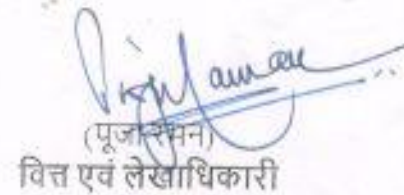 (पूजा रमन)
वित्त एवं लेखाधिकारी